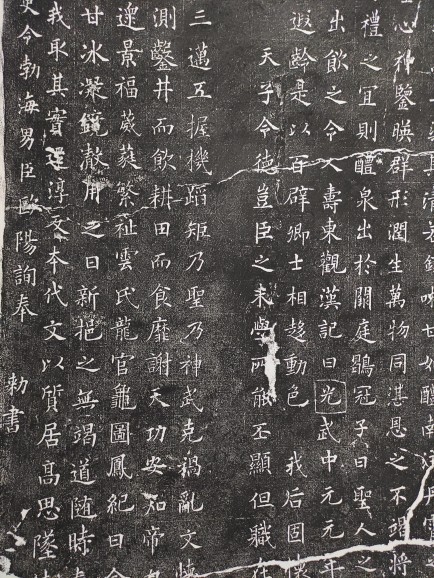 其清若鏡味甘如醴南注丹霄之
心神鑒暎群形潤生萬物同湛恩之不竭將
禮之宜則醴泉出於闕庭鶡冠子曰聖人之
出飲之令人壽東觀漢記曰光武中元元年
遐齡是以百辟卿士相趍動色我后固懷
天子令德豈臣之末學所能丕顯但職在
三邁五握機蹈矩乃聖乃神武克禍亂文懷
測鑿井而飲耕田而食靡謝天功安知帝
邃景福葳蕤繁祉雲氏龍官龜圖鳳紀日含
甘冰凝鏡澈用之日新挹之無竭道随時
我取其實還淳反本代文以質居高思墜
史令勃海男臣歐陽詢奉勅書